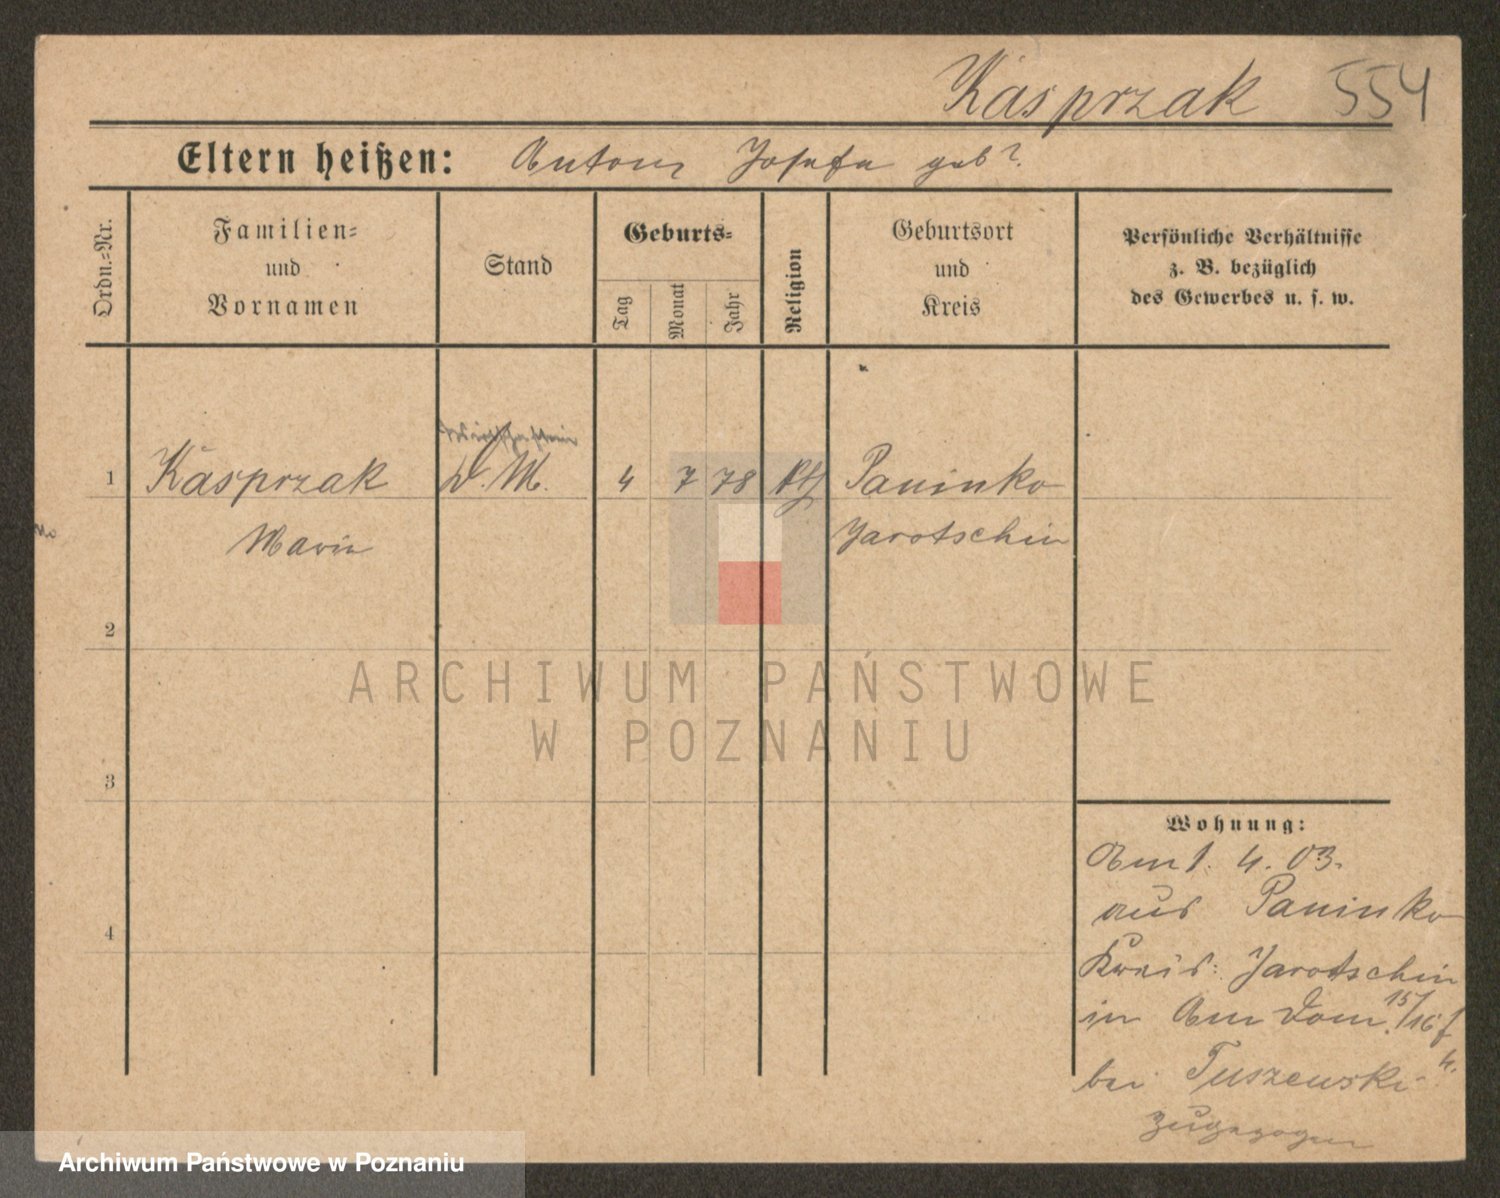 Kasprzak 554
Eltern heißen: Anton Josefa geb?
Ordn.-Nr.
Familien-
und
Vornamen
Stand
Geburts-
Tag
Monat
Jahr
Religion
Geburtsort
und
Kreis
Persönliche Verhältnisse
z. B. bezüglich
des Gewerbes u. s. w.
1 Kasprzak D. M. 4 7 78 kth Paninko
Marie Jarotschin
2
3
4
ARCHIWUM PAŃSTWOWE
W POZNANIU
Wohnung:
Am 1. 4. 03.
aus Paninko
Kreis: Jarotschin
in Am Dom. 15/16
bei Tuszewski
zugezogen
Archiwum Państwowe w Poznaniu